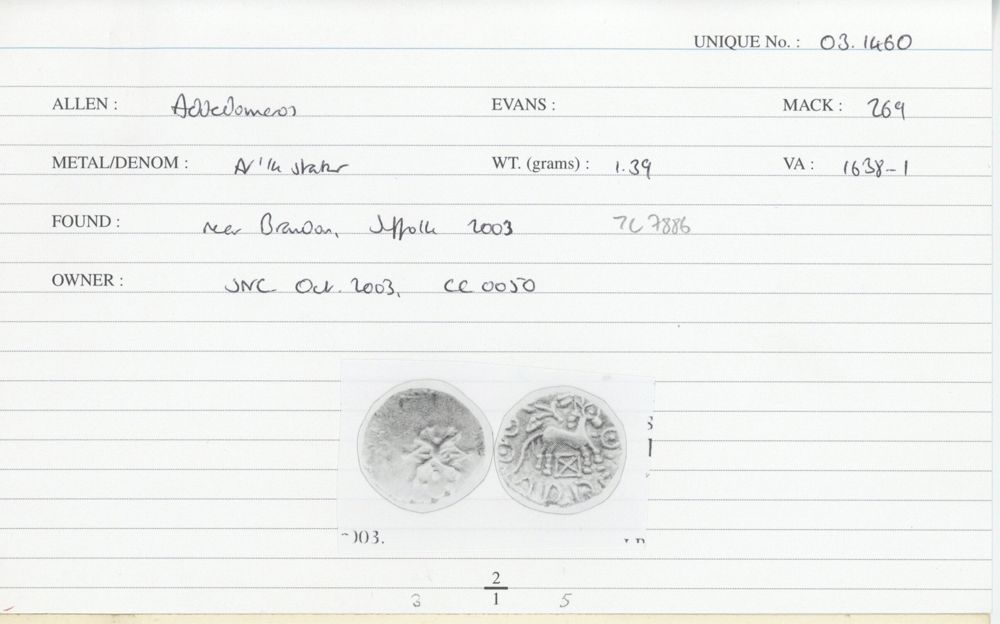 UNIQUE No. : 03.1460
ALLEN : Addedomaros EVANS : MACK : 269
METAL/DENOM : AV 1/4 stater WT. (grams) : 1.39 VA : 1638-1
FOUND : near Brandon, Suffolk 2003 TC 7886
OWNER : JNC Oct. 2003, CC 0050
003.
2
3 1 5